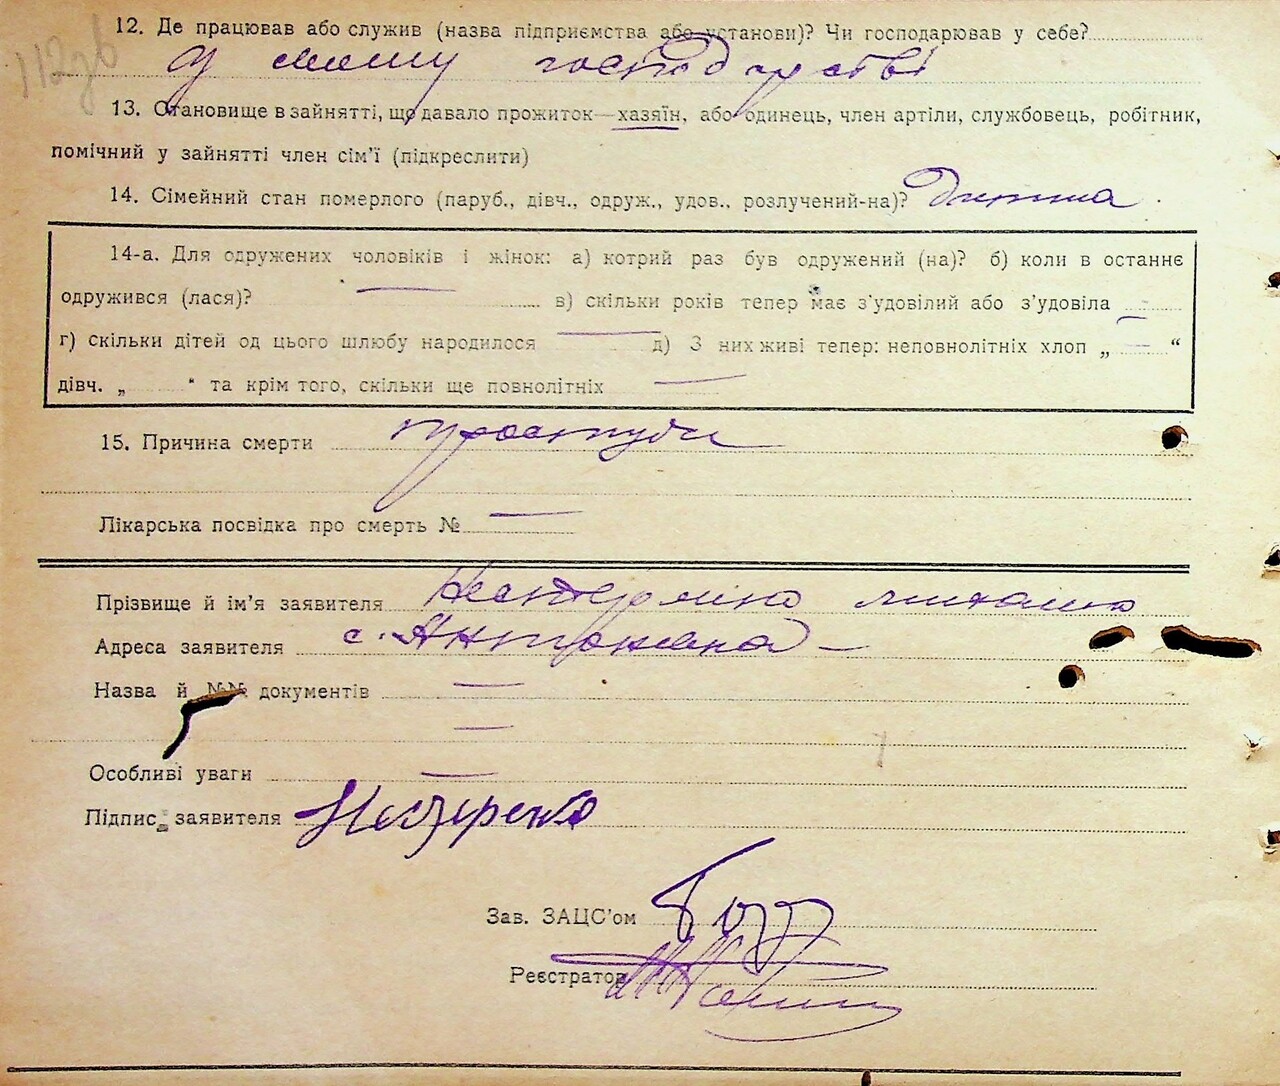 112зв
12. Де працював або служив (назва підприємства або установи)? Чи господарював у себе?
У своєму господарстві
13. Становище в зайнятті, що давало прожиток—хазяїн, або одинець, член артіли, службовець, робітник,
помічний у зайнятті член сім'ї (підкреслити)
14. Сімейний стан померлого (паруб., дівч., одруж., удов., розлучений-на)? Дитина
14-а. Для одружених чоловіків і жінок: а) котрий раз був одружений (на)? б) коли в останнє
одружився (лася)? — в) скільки років тепер має з'удовілий або з'удовіла —
г) скільки дітей од цього шлюбу народилося — д) З них живі тепер: неповнолітніх хлоп „ — “
дівч. „ “ та крім того, скільки ще повнолітніх —
15. Причина смерти простуди
Лікарська посвідка про смерть № —
Прізвище й ім'я заявителя Нестеренко
Адреса заявителя с. Антоновка —
Назва й №№ документів —
—
Особливі уваги —
Підпис заявителя Нестеренко
Зав. ЗАЦС'ом
Реєстратор